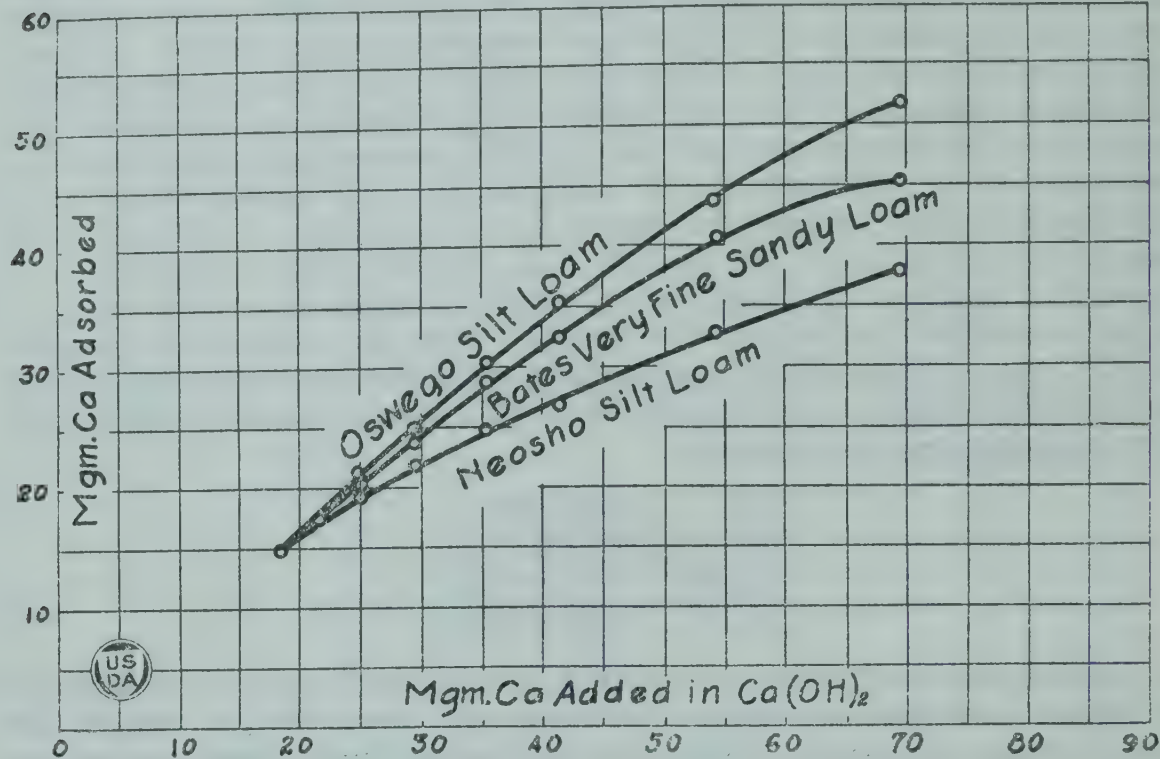 60
50
40
30
20
10
Mgm.Ca Adsorbed
Oswego Silt Loam
Bates Very Fine Sandy Loam
Neosho Silt Loam
US
DA
Mgm.Ca Added in Ca(OH)₂
0 10 20 30 40 50 60 70 80 90